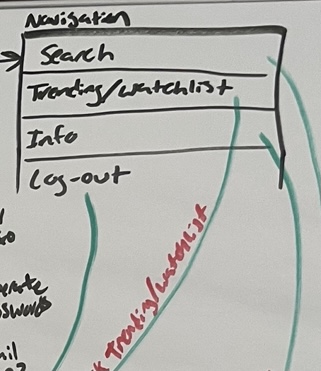 Navigation
Search
Trending/watchlist
Info
Log-out
Trending/watchlist